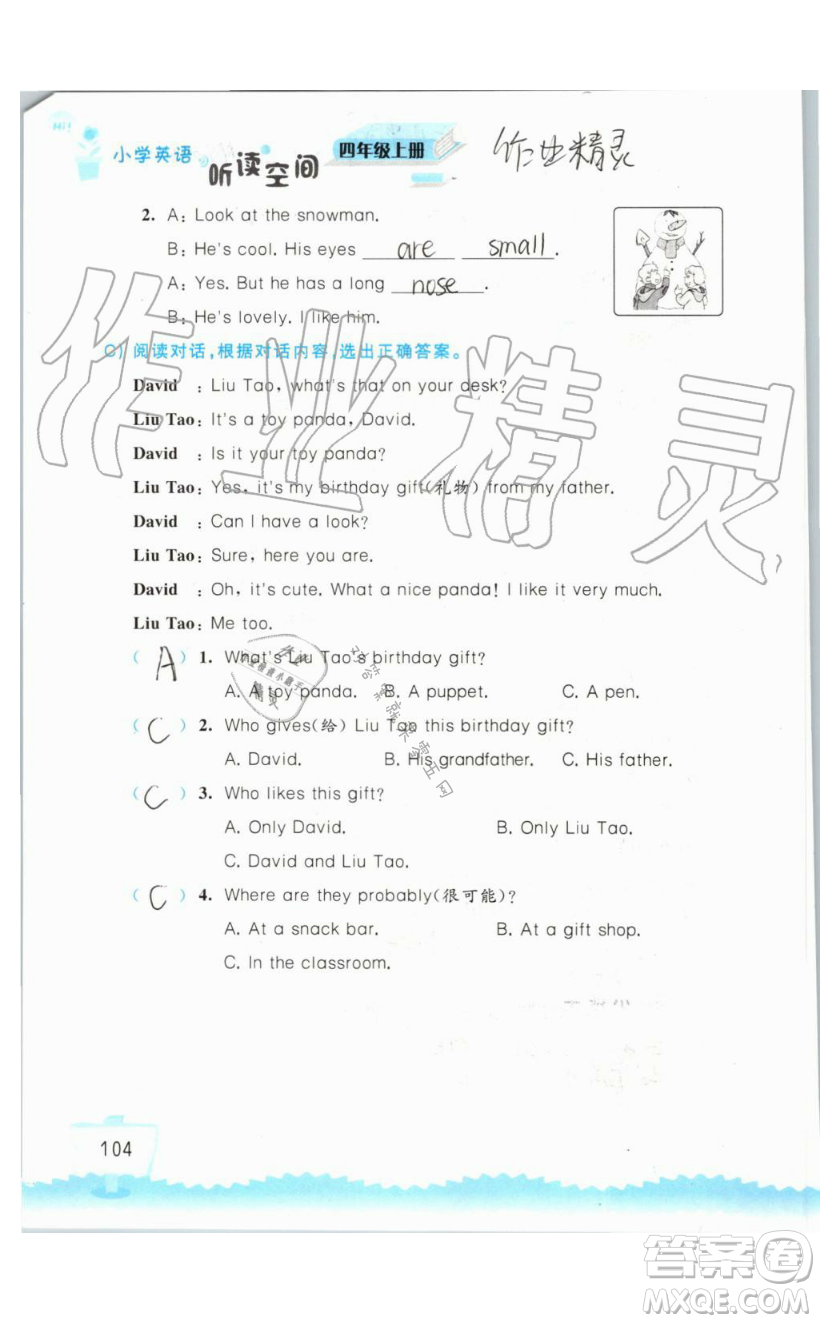 Hi!
小学英语
听读空间
四年级上册
作业精灵
2. A: Look at the snowman.
B: He's cool. His eyes are small.
A: Yes. But he has a long nose.
B: He's lovely. I like him.
C) 阅读对话,根据对话内容,选出正确答案。
David : Liu Tao, what's that on your desk?
Liu Tao: It's a toy panda, David.
David : Is it your toy panda?
Liu Tao: Yes, it's my birthday gift(礼物) from my father.
David : Can I have a look?
Liu Tao: Sure, here you are.
David : Oh, it's cute. What a nice panda! I like it very much.
Liu Tao: Me too.
( A ) 1. What's Liu Tao's birthday gift?
A. A toy panda. B. A puppet. C. A pen.
( C ) 2. Who gives(给) Liu Tao this birthday gift?
A. David. B. His grandfather. C. His father.
( C ) 3. Who likes this gift?
A. Only David. B. Only Liu Tao.
C. David and Liu Tao.
( C ) 4. Where are they probably(很可能)?
A. At a snack bar. B. At a gift shop.
C. In the classroom.
104
作业精灵
答案卷
MXQE.COM